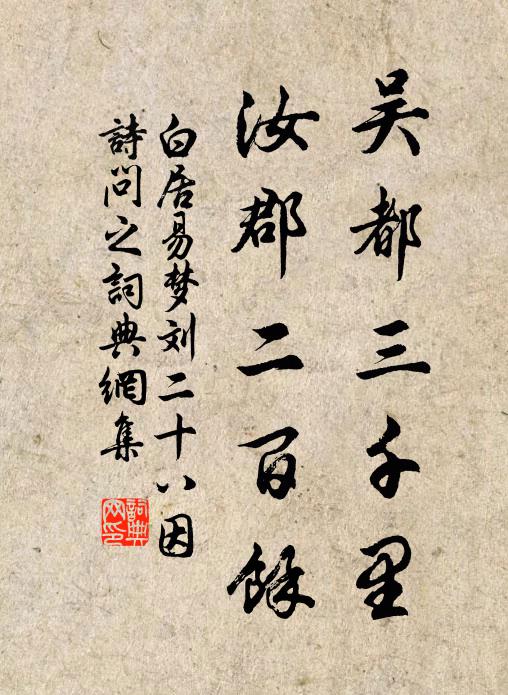 吴都三千里
汝郡二百餘
白居易梦刘二十八因
詩问之詞典網集
詞典
网印